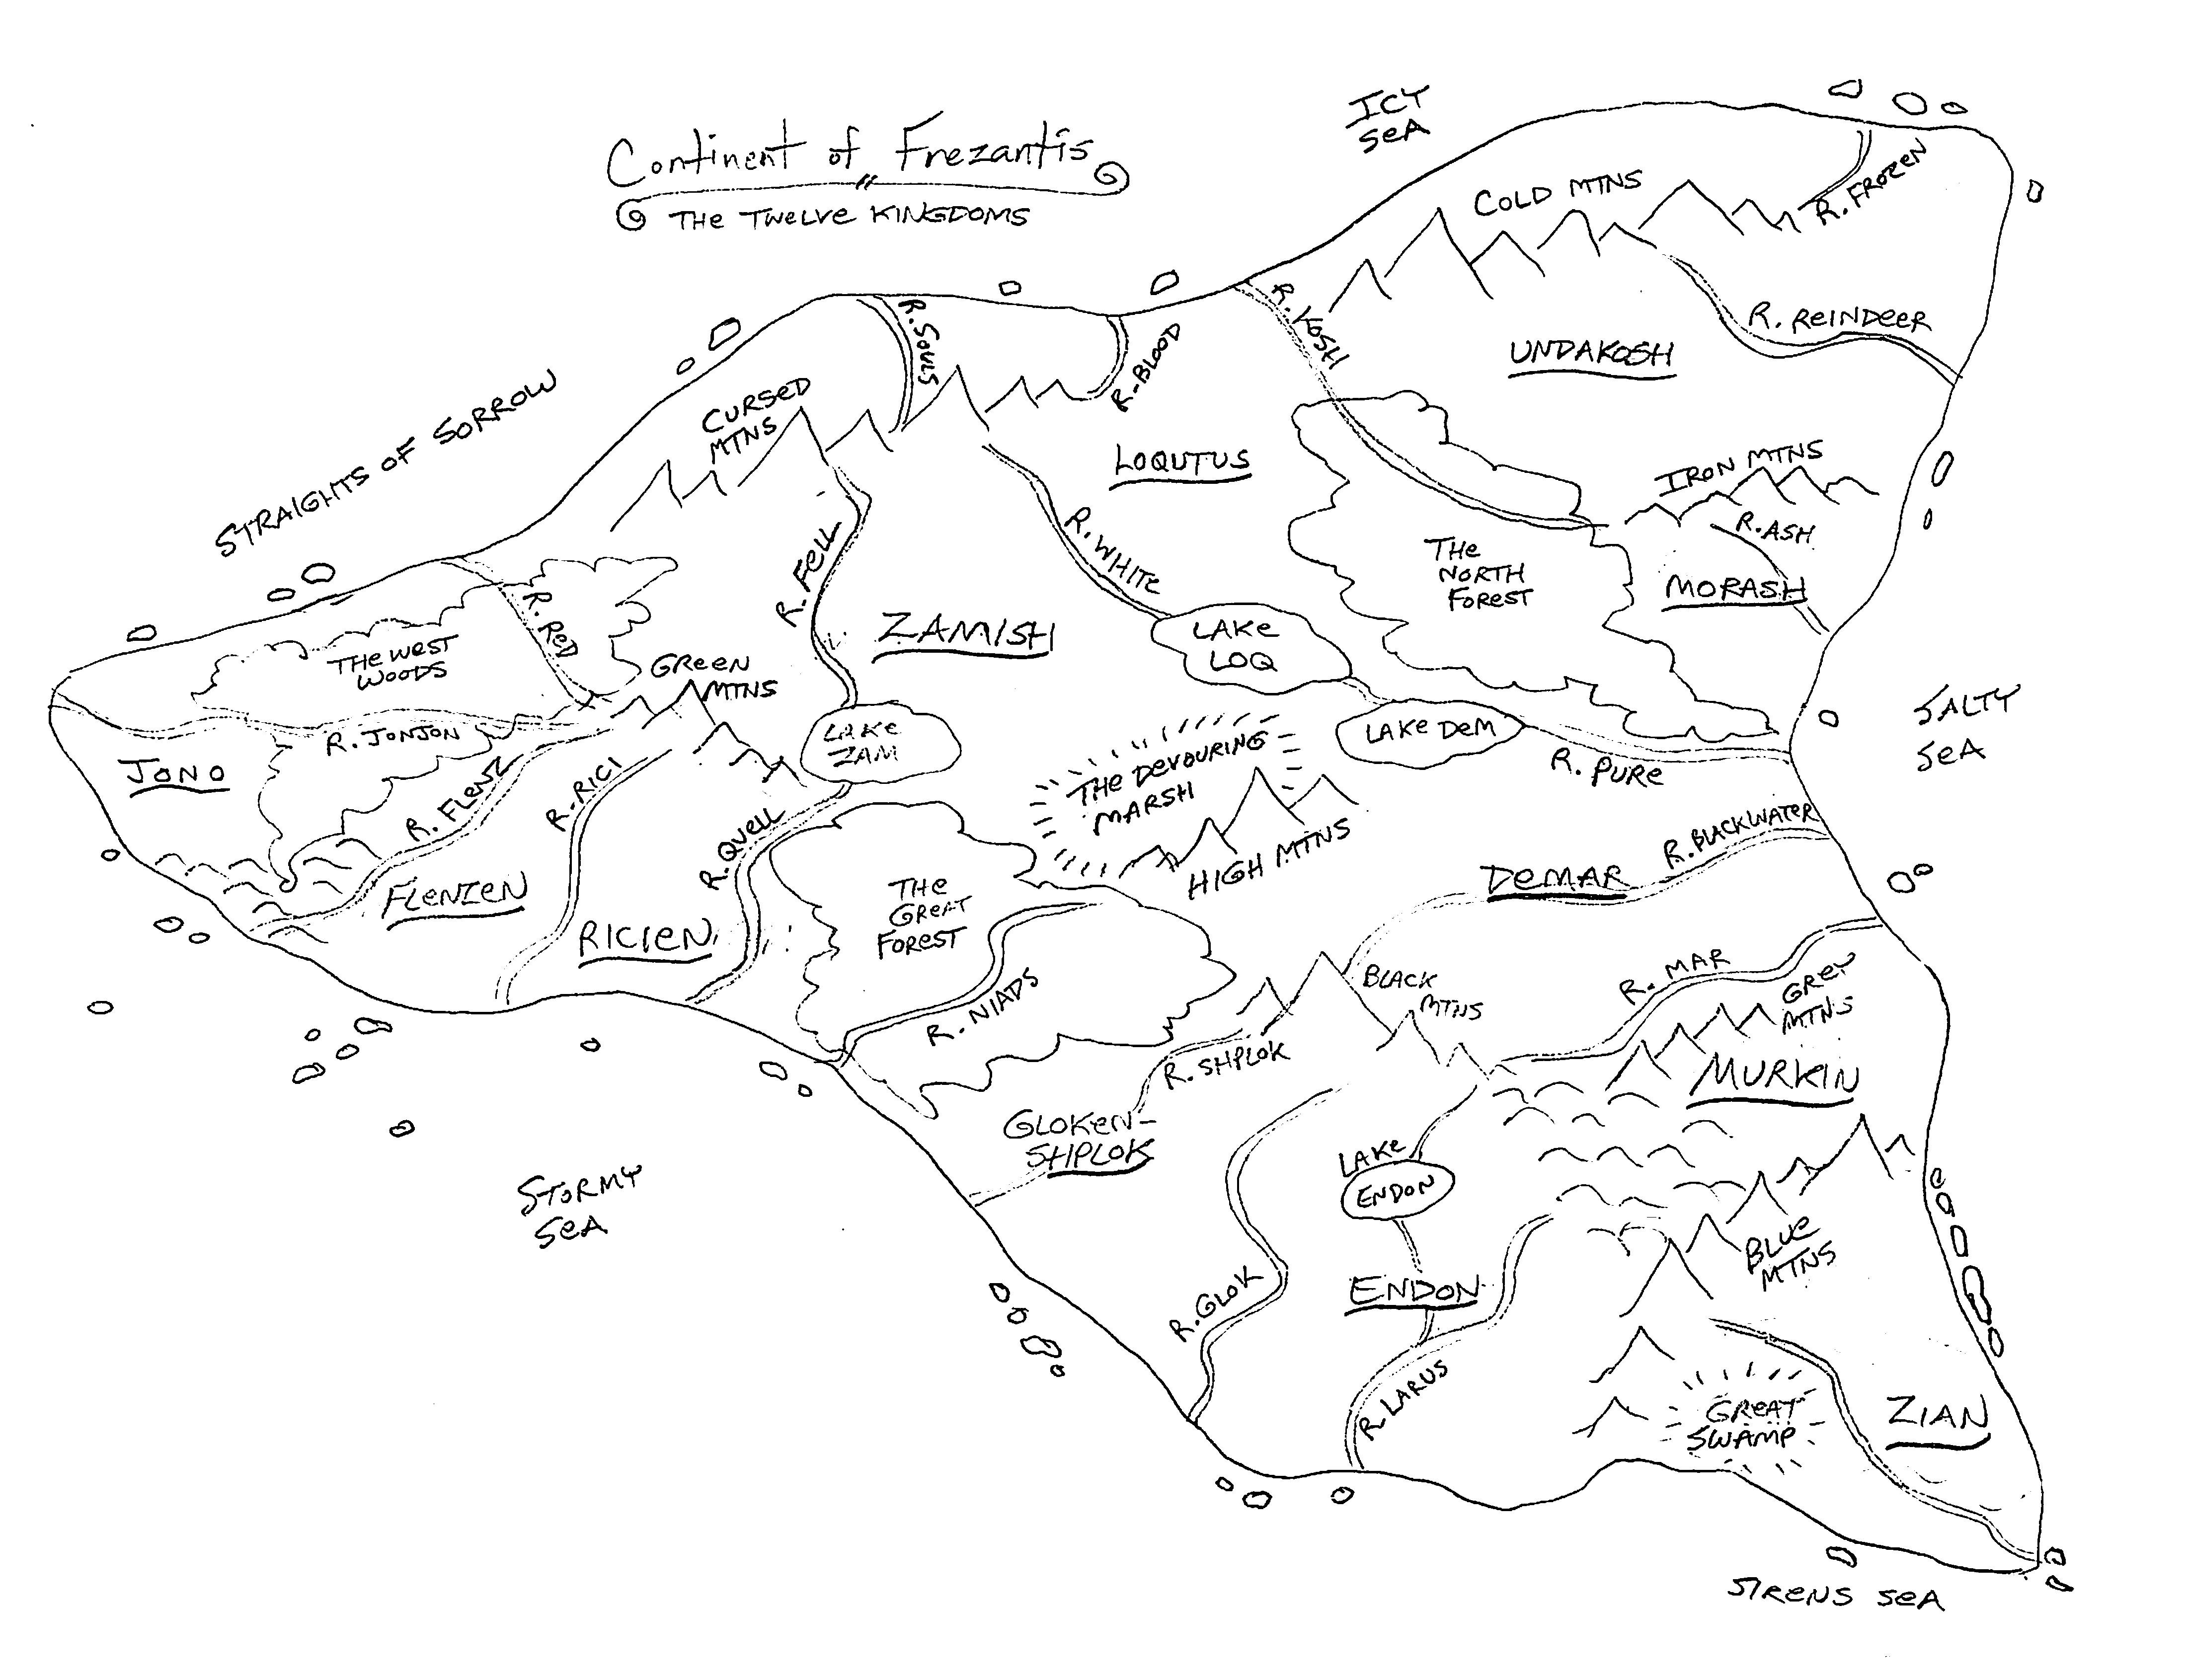 Continent of Frezantis
THE TWELVE KINGDOMS
ICY
SEA
COLD MTNS
R. FROZEN
R. REINDEER
UNDAKOSH
R. KOSH
R. SOULS
R. BLOOD
CURSED
MTNS
STRAIGHTS OF SORROW
LOQUTUS
IRON MTNS
R. ASH
MORASH
THE
NORTH
FOREST
R. WHITE
R. FELL
ZAMISH
LAKE
LOQ
R. RED
THE WEST
WOODS
GREEN
MTNS
R. JONJON
JONO
LAKE
ZAM
LAKE DEM
R. PURE
SALTY
SEA
THE DEVOURING
MARSH
HIGH MTNS
R. FLENZ
R. RICI
R. QUELL
FLENZEN
RICIEN
THE
GREAT
FOREST
R. NIADS
DEMAR
R. BLACKWATER
BLACK
MTNS
R. MAR
GREY
MTNS
MURKIN
R. SHPLOK
GLOKEN-
SHPLOK
LAKE
ENDON
STORMY
SEA
BLUE
MTNS
R. GLOK
ENDON
R. LARUS
GREAT
SWAMP
ZIAN
SIRENS SEA